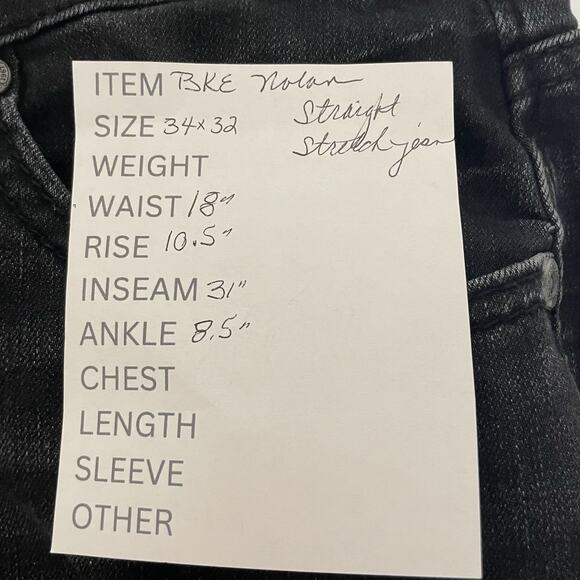 ITEM BKE Nolan
Straight
SIZE 34x32
Stretch jean
WEIGHT
WAIST 18"
RISE 10.5"
INSEAM 31"
ANKLE 8.5"
CHEST
LENGTH
SLEEVE
OTHER